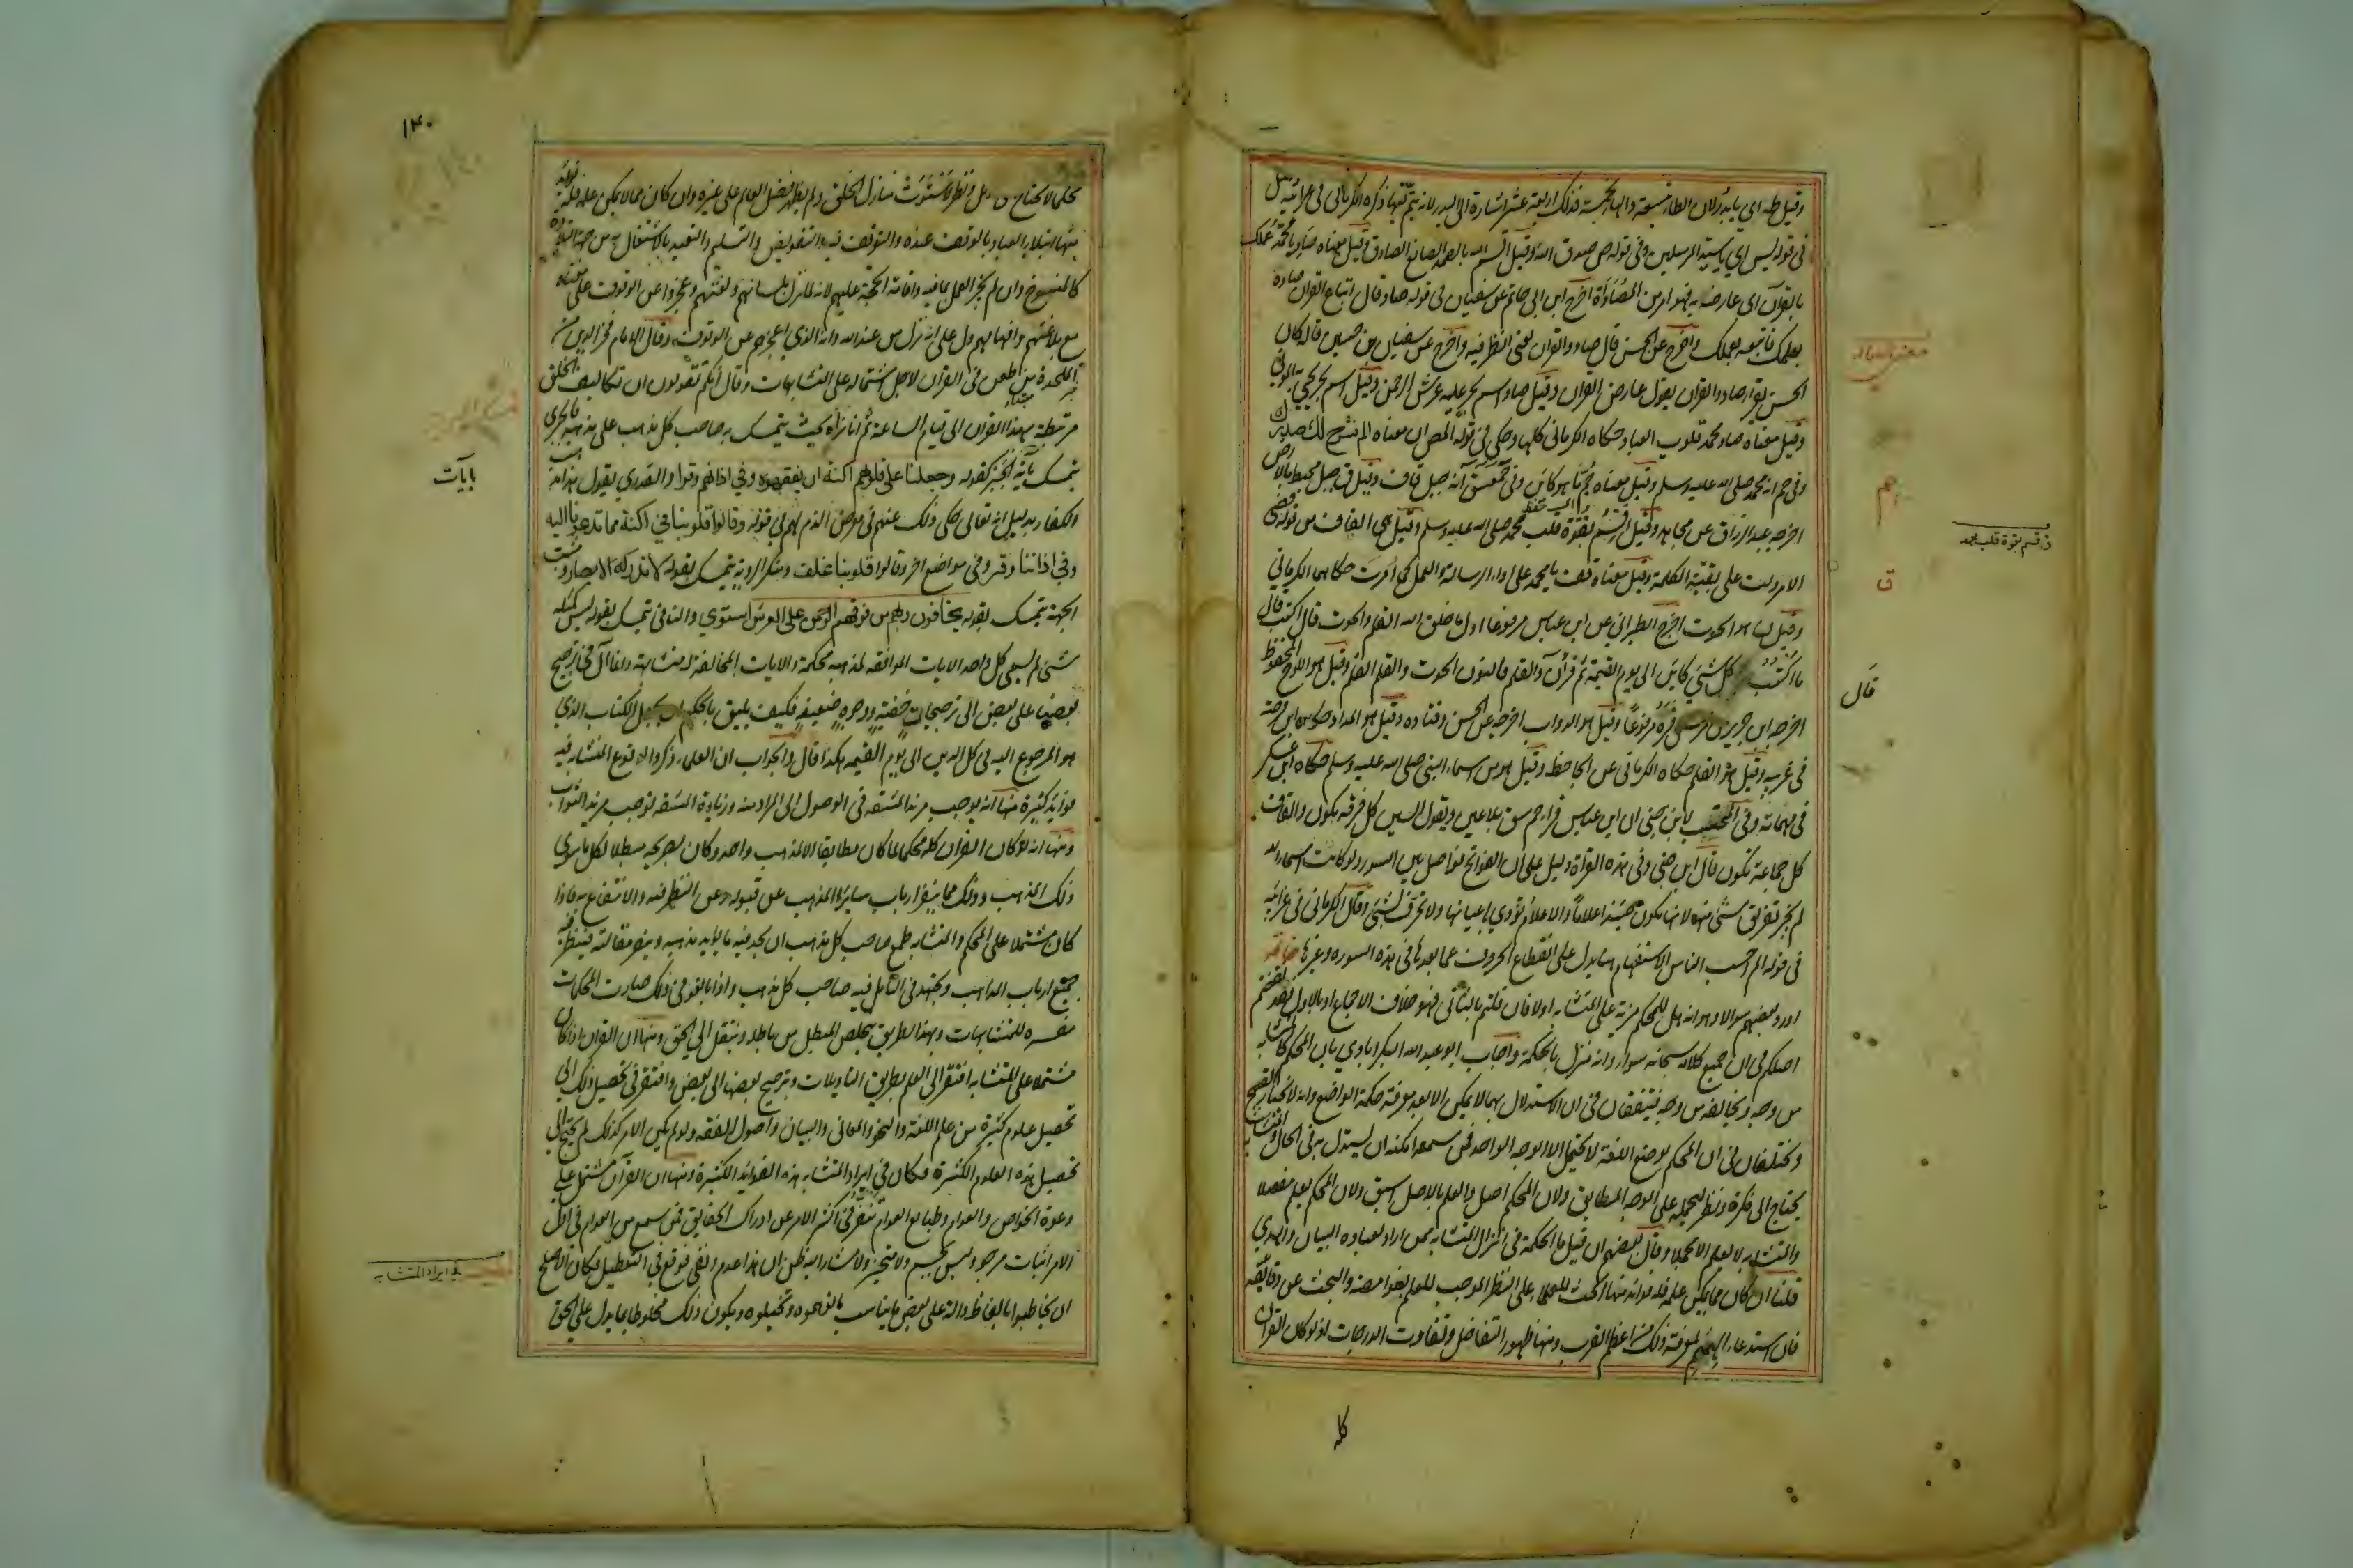 وقيل طه اي يا بدر لان الطاء بتسعة والهاء بخمسة فذلك اربعة عشر اشارة الى البدر لانه يتم فيها ذكره الكرماني في غرائبه وقيل
في قوله يس اي يا سيد المرسلين وفي قوله ص صدق الله وقيل اقسم الله بالصمد الصانع الصادق وقيل معناه صاد يا محمد عملك
بالقرآن اى عارضه به فهو امر من المصاداة اخرج ابن ابي حاتم عن سفيان في قوله صاد قال اتباع القران صاده
بعلمك فاتبعه بعملك واخرج عن الحسن قال صاد والقران يعني انظر فيه واخرج عن سفيان بن حسين قال كان
الحسن يقرا صاد والقران يقول عارض القران وقيل صاد اسم بحر عليه عرش الرحمن وقيل اسم بحر يحيى به الموتى
وقيل معناه صاد محمد قلوب العباد حكاه الكرماني كلها وحكى في قوله المص ان معناه الم نشرح لك صدرك
وفي حم انه محمد صلى الله عليه وسلم وقيل معناه حم ما هو كائن وفي حمعسق انه جبل قاف وقيل ق جبل محيط بالارض
اخرجه عبد الرزاق عن مجاهد وقيل اقسم بقوة قلب محمد صلى الله عليه وسلم وقيل هي القاف من قوله قضى
الامر دلت على بقية الكلمة وقيل معناه قف يا محمد على اداء الرسالة والعمل كما امرت حكاهما الكرماني
وقيل ن هو الحوت اخرج الطبراني عن ابن عباس مرفوعا اول ما خلق الله القلم والحوت قال اكتب قال
ما اكتب كل شئ كائن الى يوم القيمة ثم قرأ ن والقلم فالنون الحوت والقلم القلم وقيل هو اللوح المحفوظ
اخرجه ابن جرير من مرسل قرة مرفوعا وقيل هو الدواة اخرجه عن الحسن وقتاده وقيل هو المداد حكاه ابن
في غريبه وقيل هو القلم حكاه الكرماني عن الجاحظ وقيل هو من اسماء النبي صلى الله عليه وسلم حكاه ابن عسكر
في مبهماته وفي المحتسب لابن جني ان ابن عباس قرا حم سق بلا عين ويقول السين كل فرقة تكون والقاف
كل جماعة تكون قال ابن جني وفي هذه القراة دليل على ان الفواتح فواصل بين السور ولو كانت اسماء الله
لم يجز تحريف شئ منها لانها تكون حينئذ اعلاما والاعلام تؤدي باعيانها ولا تحرف لشئ وقال الكرماني في غرائبه
في قوله الم احسب الناس الاستفهام هنا يدل على انقطاع الحروف عما بعدها في هذه السوره وغيرها خاتمة
اورد بعضهم سوالا وهو انه هل للمحكم مزية على المتشابه او لا فان قلتم بالثاني فهو خلاف الاجماع او بالاول فقد نقضتم
اصلكم في ان جميع كلامه سبحانه سواء وانه منزل بالحكمة واجاب ابو عبد الله البكرابادي بان المحكم كالمتشابه
من وجه ويخالفه من وجه فيتفقان في ان الاستدلال بهما لا يمكن الا بعد معرفة حكمة الواضع وانه لا يختار القبيح
ويختلفان في ان المحكم بوضع اللغة لا يحتمل الا الوجه الواحد فمن سمعه امكنه ان يستدل به في الحال والمتشابه
يحتاج الى فكرة ونظر ليحمله على الوجه المطابق ولان المحكم اصل والعلم بالاصل اسبق ولان المحكم يعلم مفصلا
والمتشابه لا يعلم الا مجملا وقال بعضهم ان قيل ما الحكمة في انزال المتشابه ممن اراد لعباده البيان والهدي
قلنا ان كان مما يمكن علمه فله فوائد منها الحث للعلماء على النظر الموجب للعلم بغوامضه والبحث عن دقايقه
فان استدعاء الهمم لمعرفة ذلك من اعظم القرب ومنها ظهور التفاضل وتفاوت الدرجات اذ لو كان القران
كله
حم
ق قسم بقوة قلب محمد
ق
قال
١٣٠
محكما لا يحتاج الى تاويل ونظر لاستوت منازل الخلق ولم يظهر فضل العالم على غيره وان كان مما لا يمكن علمه فله فوائد
منها ابتلاء العباد بالوقوف عنده والتوقف فيه والتفويض والتسليم والتعبد بالاشتغال به من جهة التلاوة
كالمنسوخ وان لم يجز العمل بما فيه واقامة الحجة عليهم لانه لما نزل بلسانهم ولغتهم وعجزوا عن الوقوف على معناه
مع بلاغتهم وافهامهم دل على انه نزل من عند الله وانه الذي اعجزهم عن الوقوف وقال الامام فخر الدين من
الملحدة من طعن في القران لاجل اشتماله على المتشابهات وقال انكم تقولون ان تكاليف الخلق
مرتبطة بهذا القران الى قيام الساعة ثم انا نراه بحيث يتمسك به صاحب كل مذهب على مذهبه فالجبري
يتمسك بآية الجبر كقوله وجعلنا على قلوبهم اكنة ان يفقهوه وفي اذانهم وقرا والقدري يقول هذا مذهب
الكفار بدليل انه تعالى حكى ذلك عنهم في معرض الذم لهم في قوله وقالوا قلوبنا في اكنة مما تدعونا اليه
وفي اذاننا وقر وفي مواضع اخر وقالوا قلوبنا غلف ومنكر الروية يتمسك بقوله لا تدركه الابصار ومثبت
الجهة يتمسك بقوله يخافون ربهم من فوقهم الرحمن على العرش استوي والنافي يتمسك بقوله ليس كمثله
شئ ثم يسمي كل واحد الايات الموافقه لمذهبه محكمة والايات المخالفة له متشابهة وانما آل في ترجيح
بعضها على بعض الى ترجيحات خفية ووجوه ضعيفة فكيف يليق بالحكيم ان يجعل الكتاب الذي
هو المرجوع اليه في كل الدين الى يوم القيمه هكذا قال والجواب ان العلماء ذكروا لوقوع المتشابه فيه
فوايد كثيرة منها انه يوجب مزيد المشقه في الوصول الى المراد منه وزيادة المشقه توجب مزيد الثواب
ومنها انه لو كان القران كله محكما لما كان مطابقا الا لمذهب واحد وكان بصريحه مبطلا لكل ما سوي
ذلك المذهب وذلك مما ينفر ارباب سائر المذهب عن قبوله وعن النظر فيه والانتفاع به فاذا
كان مشتملا على المحكم والمتشابه طمع صاحب كل مذهب ان يجد فيه ما يؤيد مذهبه وينصر مقالته فينظر فيه
جميع ارباب المذاهب ويجتهد في التامل فيه صاحب كل مذهب واذا بالغو في ذلك صارت المحكمات
مفسره للمتشابهات وبهذا الطريق يتخلص المبطل من باطله وينتقل الى الحق ومنها ان القران اذا كان
مشتملا على المتشابه افتقر الى العلم بطريق التاويلات وترجيح بعضها الى بعض وافتقر في تحصيل ذلك الي
تحصيل علوم كثيرة من علم اللغة والنحو والمعاني والبيان واصول الفقه ولو لم يكن الامر كذلك لم يحتج الى
تحصيل هذه العلوم الكثيرة فكان في ايراد المتشابه هذه الفوائد الكثيرة ومنها ان القرآن مشتمل على
دعوة الخواص والعوام وطبايع العوام تنفر في اكثر الامر عن ادراك الحقايق فمن سمع من العوام في اول
الامر اثبات موجود ليس بجسم ولا متحيز ولا مشار اليه ظن ان هذا عدم ونفي فوقع في التعطيل فكان الاصلح
ان يخاطبوا بالفاظ دالة على بعض ما يناسب ما توهموه وتخيلوه ويكون ذلك مخلوطا بما يدل على الحق
بايات
في ايراد المتشابه